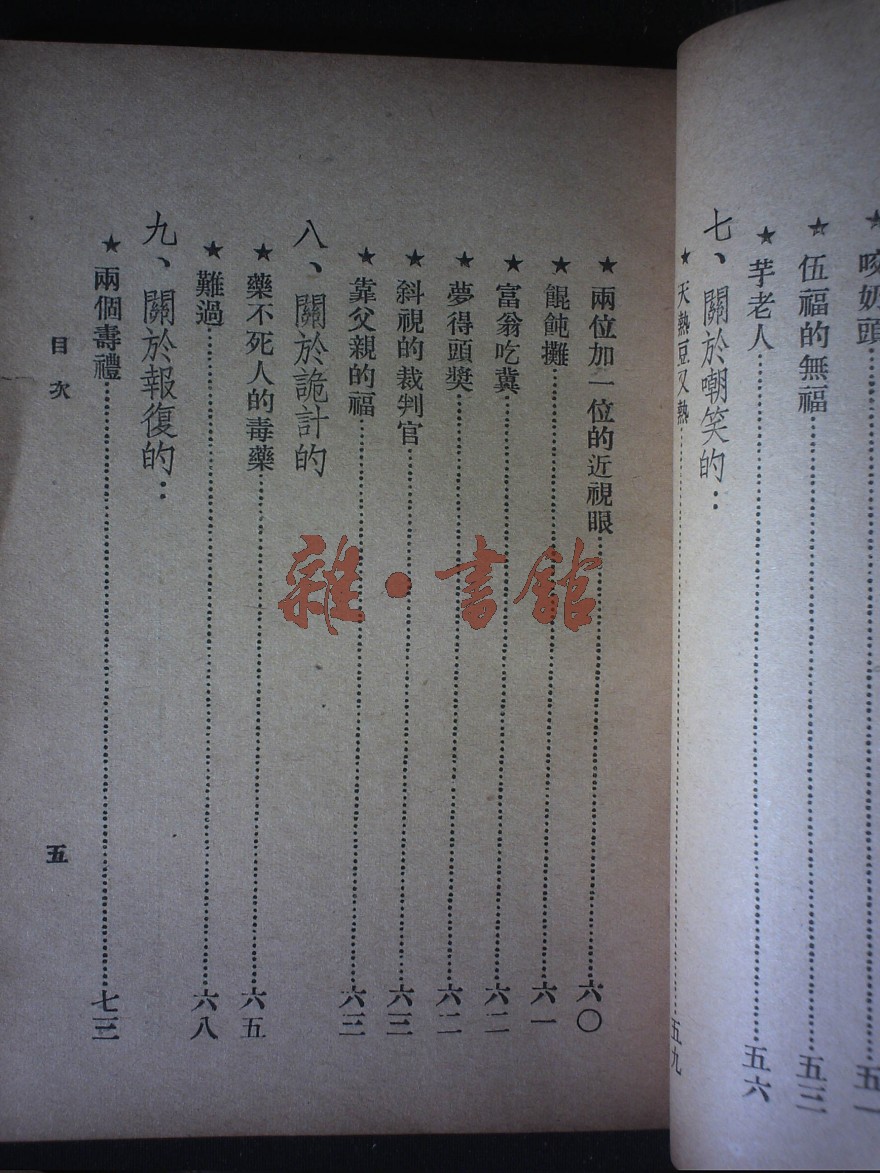 咬奶頭……五一
★伍福的無福……五三
★芋老人……五六
七、關於嘲笑的：
★天熱豆又熱……五九
★兩位加一位的近視眼……六〇
★餛飩攤……六一
★富翁吃糞……六二
★夢得頭獎……六二
★斜視的裁判官……六三
★靠父親的福……六三
八、關於詭計的
★藥不死人的毒藥……六五
★難過……六八
九、關於報復的：
★兩個壽禮……七三
目次
五
雜·書館